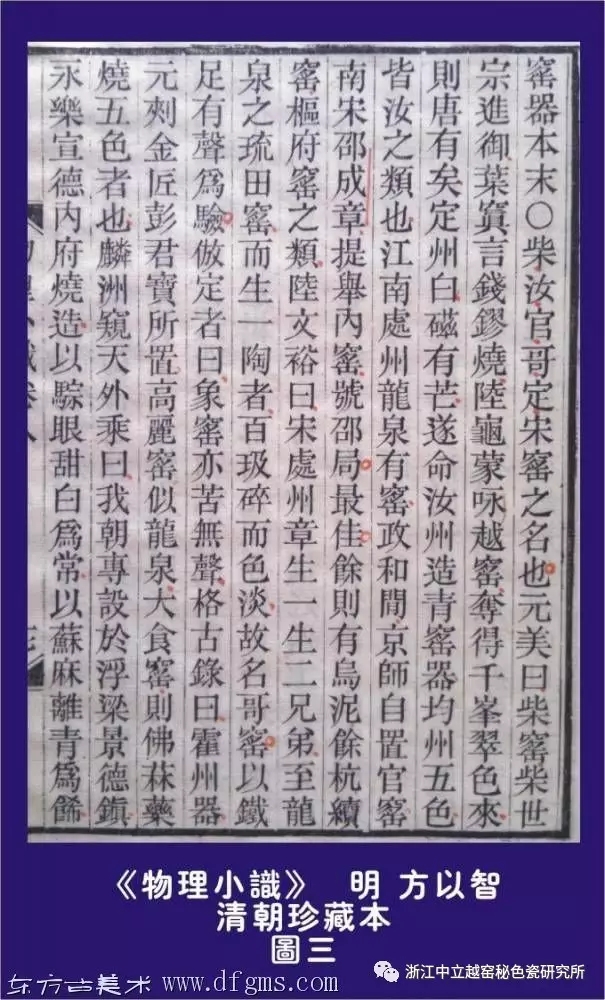 窰器本末〇柴汝官哥定宋窰之名也元美曰柴窰柴世
宗進御葉寘言錢鏐燒陸龜蒙咏越窰奪得千峯翠色來
則唐有矣定州白磁有芒遂命汝州造青窰器均州五色
皆汝之類也江南處州龍泉有窰政和間京師自置官窰
南宋邵成章提舉內窰號邵局最佳餘則有烏泥餘杭續
窰樞府窰之類陸文裕曰宋處州章生一生二兄弟至龍
泉之琉田窰而生一陶者百圾碎而色淡故名哥窰以鐵
足有聲爲驗倣定者曰象窰亦苦無聲格古錄曰霍州器
元刻金匠彭君寶所置高麗窰似龍泉大食窰則佛菻藥
燒五色者也麟洲窺天外乘曰我朝專設於浮梁景德鎮
永樂宣德內府燒造以騌眼甜白爲常以蘇麻離青爲餙
物理小識卷八
《物理小識》 明 方以智
清朝珍藏本
圖三
东方古美术 www.dfgms.com
浙江中立越窑秘色瓷研究所